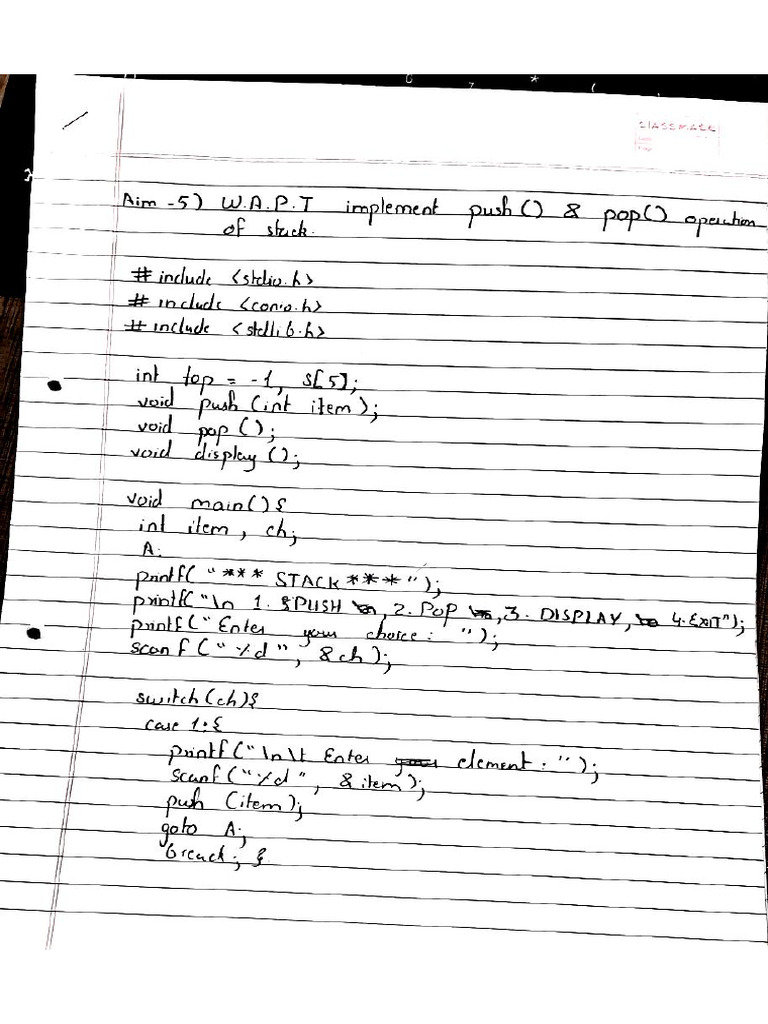 classmate
Aim -5) W.A.P.T implement push() & pop() operation
of stack.
# include <stdio.h>
# include <conio.h>
# include <stdlib.h>
int top = -1, s[5];
void push (int item);
void pop ();
void display ();
void main() {
int item, ch;
A:
printf( "*** STACK ***");
printf("\n 1. PUSH, 2. POP, 3. DISPLAY, 4. EXIT");
printf(" Enter your choice: ");
scanf ("%d", &ch);
switch(ch){
case 1:{
printf("\n\t Enter element: ");
scanf ("%d", &item);
push (item);
goto A;
break; }